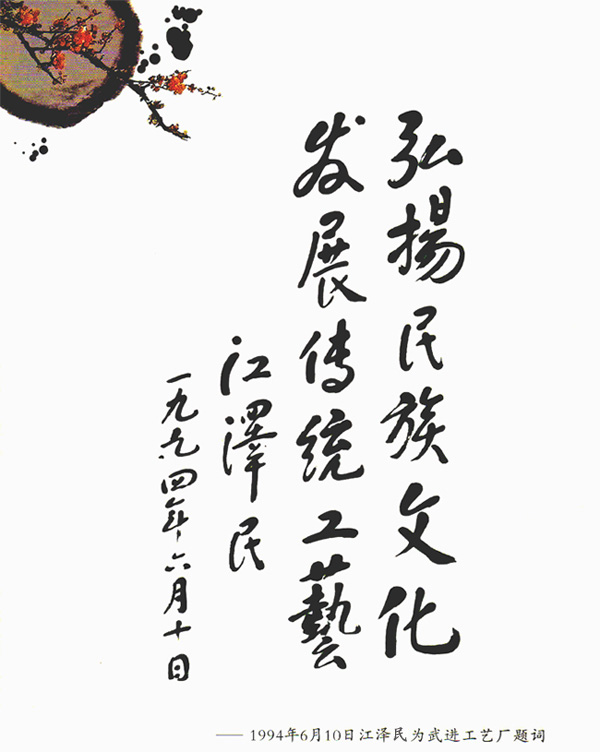 弘揚民族文化
发展传统工藝
江澤民
一九九四年六月十日
—— 1994年6月10日江泽民为武进工艺厂题词